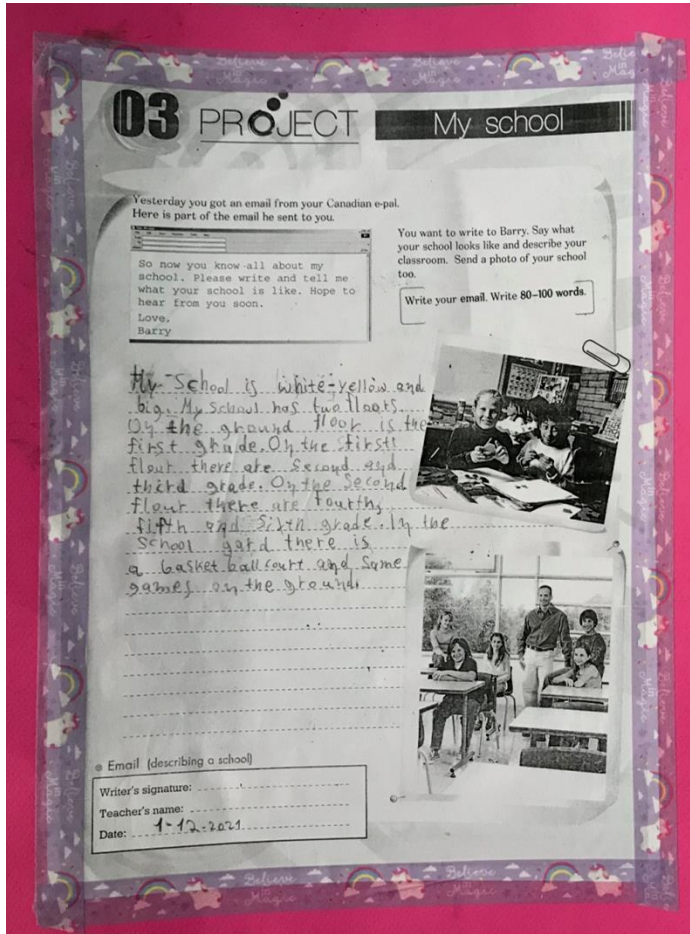 03 PROJECT My school
Yesterday you got an email from your Canadian e-pal.
Here is part of the email he sent to you.
So now you know all about my
school. Please write and tell me
what your school is like. Hope to
hear from you soon.
Love,
Barry
You want to write to Barry. Say what
your school looks like and describe your
classroom. Send a photo of your school
too.
Write your email. Write 80–100 words.
My School is white-yellow and
big. My School has two floors.
On the ground floor is the
first grade. On the first
flour there are Second and
third grade. On the Second
flour there are fourth,
fifth and Sixth grade. In the
School gard there is
a basket ball court and Same
games on the ground.
Email (describing a school)
Writer's signature:
Teacher's name:
Date: 1-12-2021
Believe
in
Magic